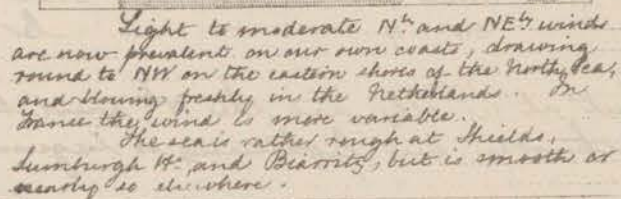 Light to moderate Nly and NEly winds
are now prevalent on our own coasts, drawing
round to NW on the eastern shores of the North Sea,
and blowing freshly in the Netherlands. In
France the wind is more variable.
The sea is rather rough at Shields,
Sumburgh Hd and Biarritz, but is smooth or
nearly so elsewhere.